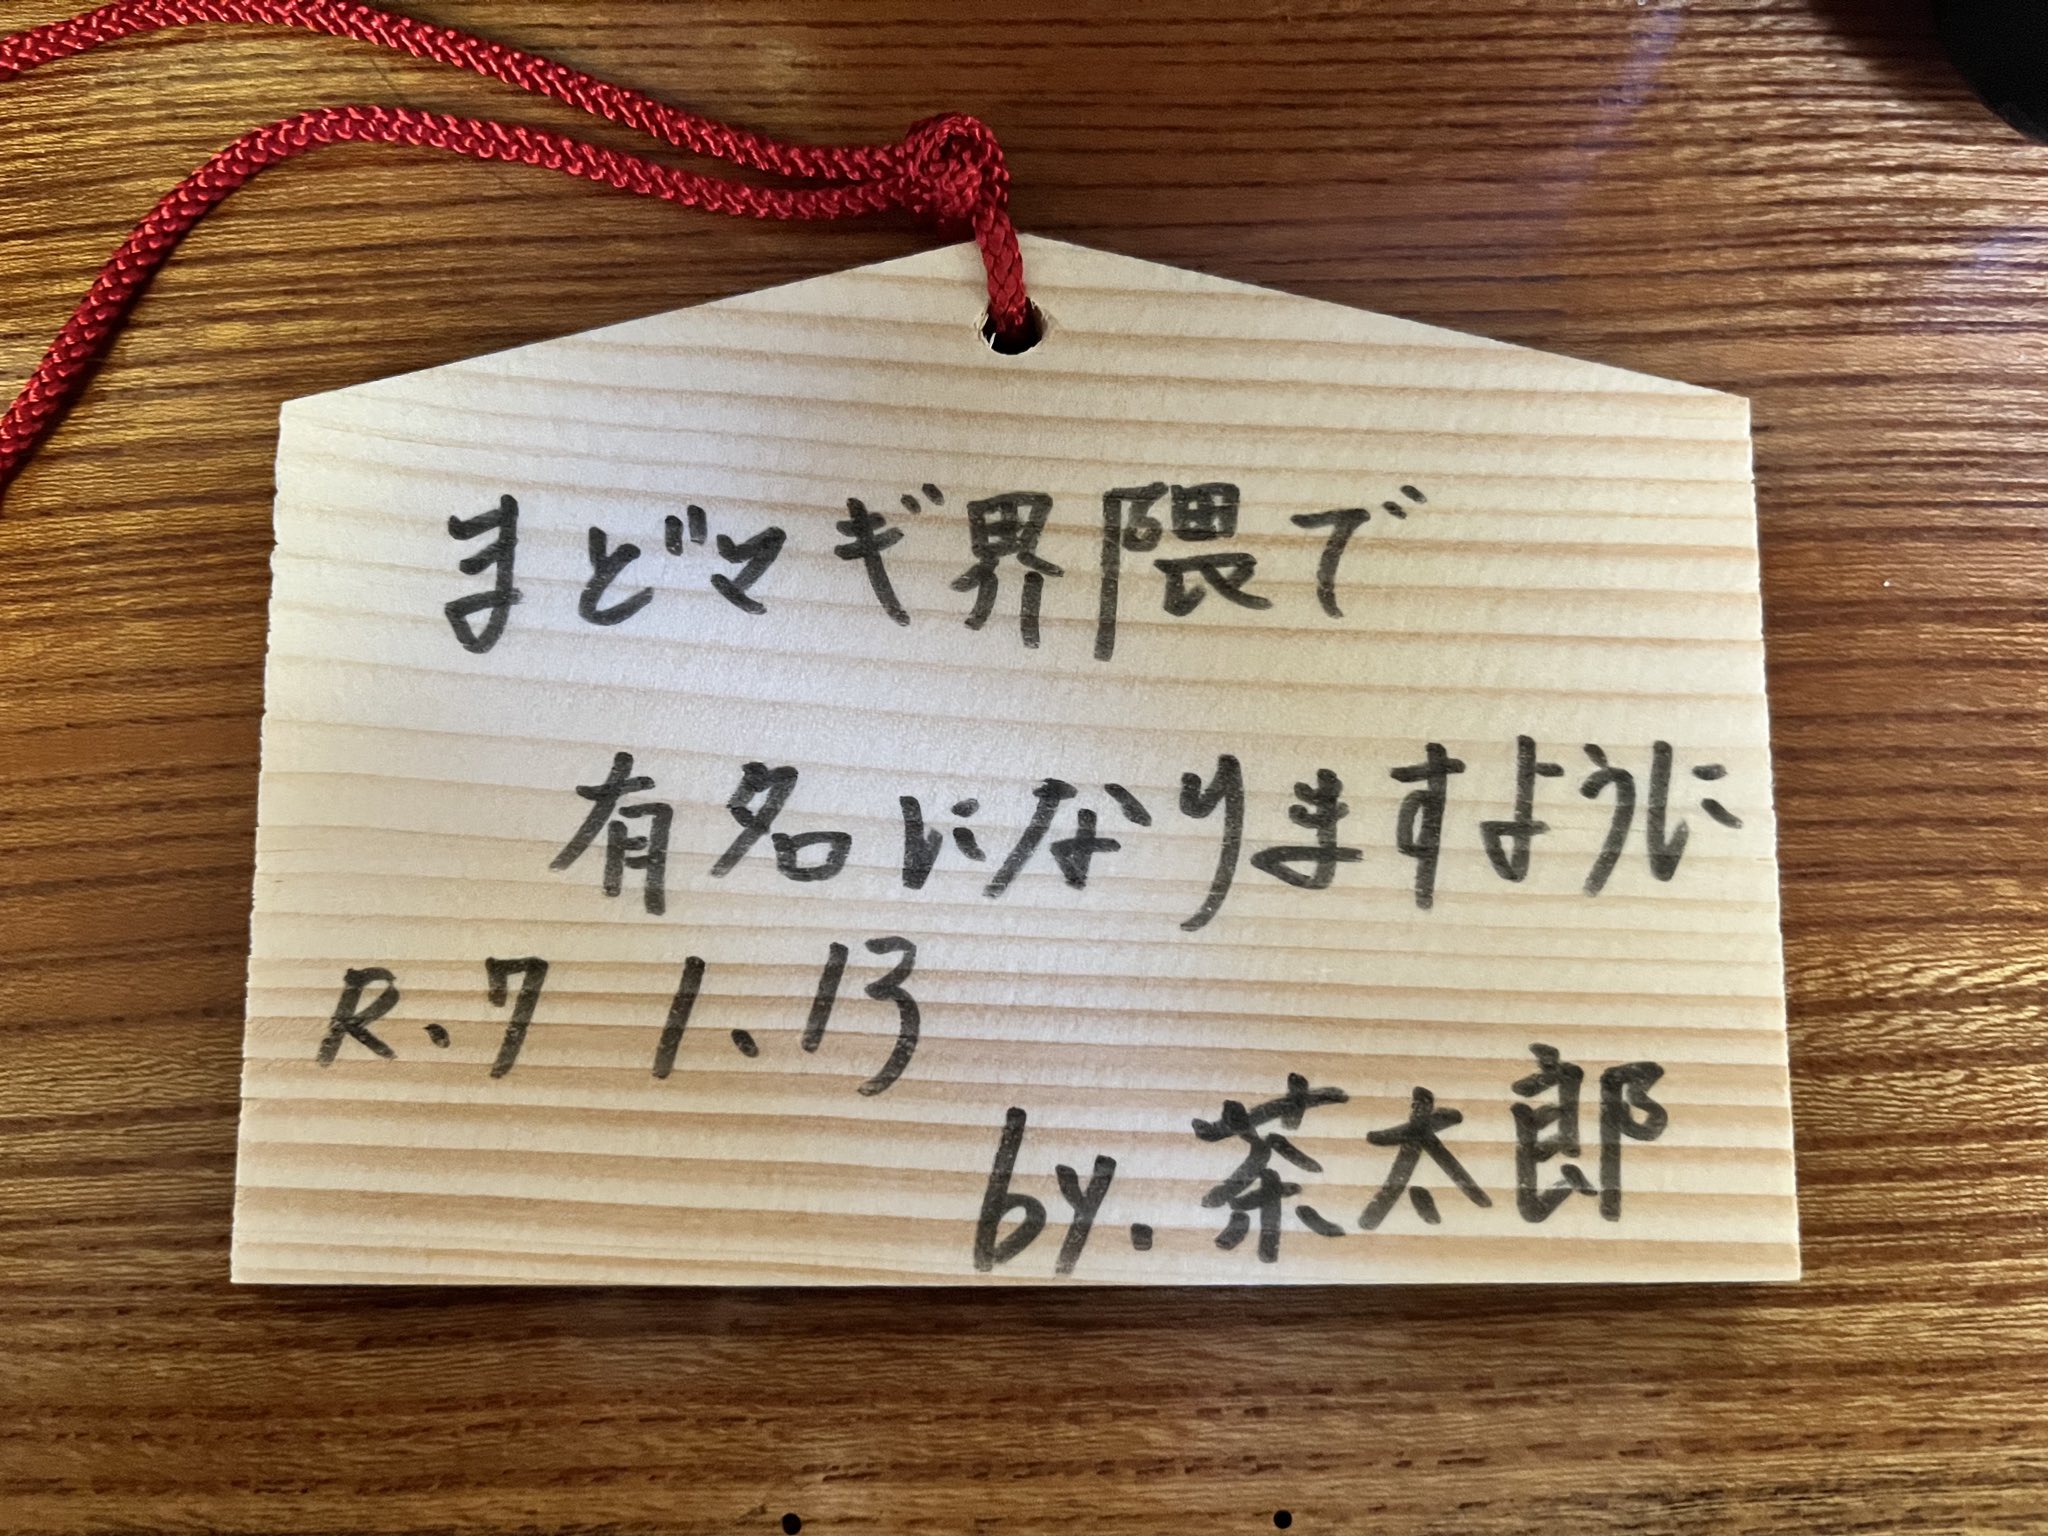 まどマギ界隈で
有名になりますように
R、7 1、13
by.茶太郎